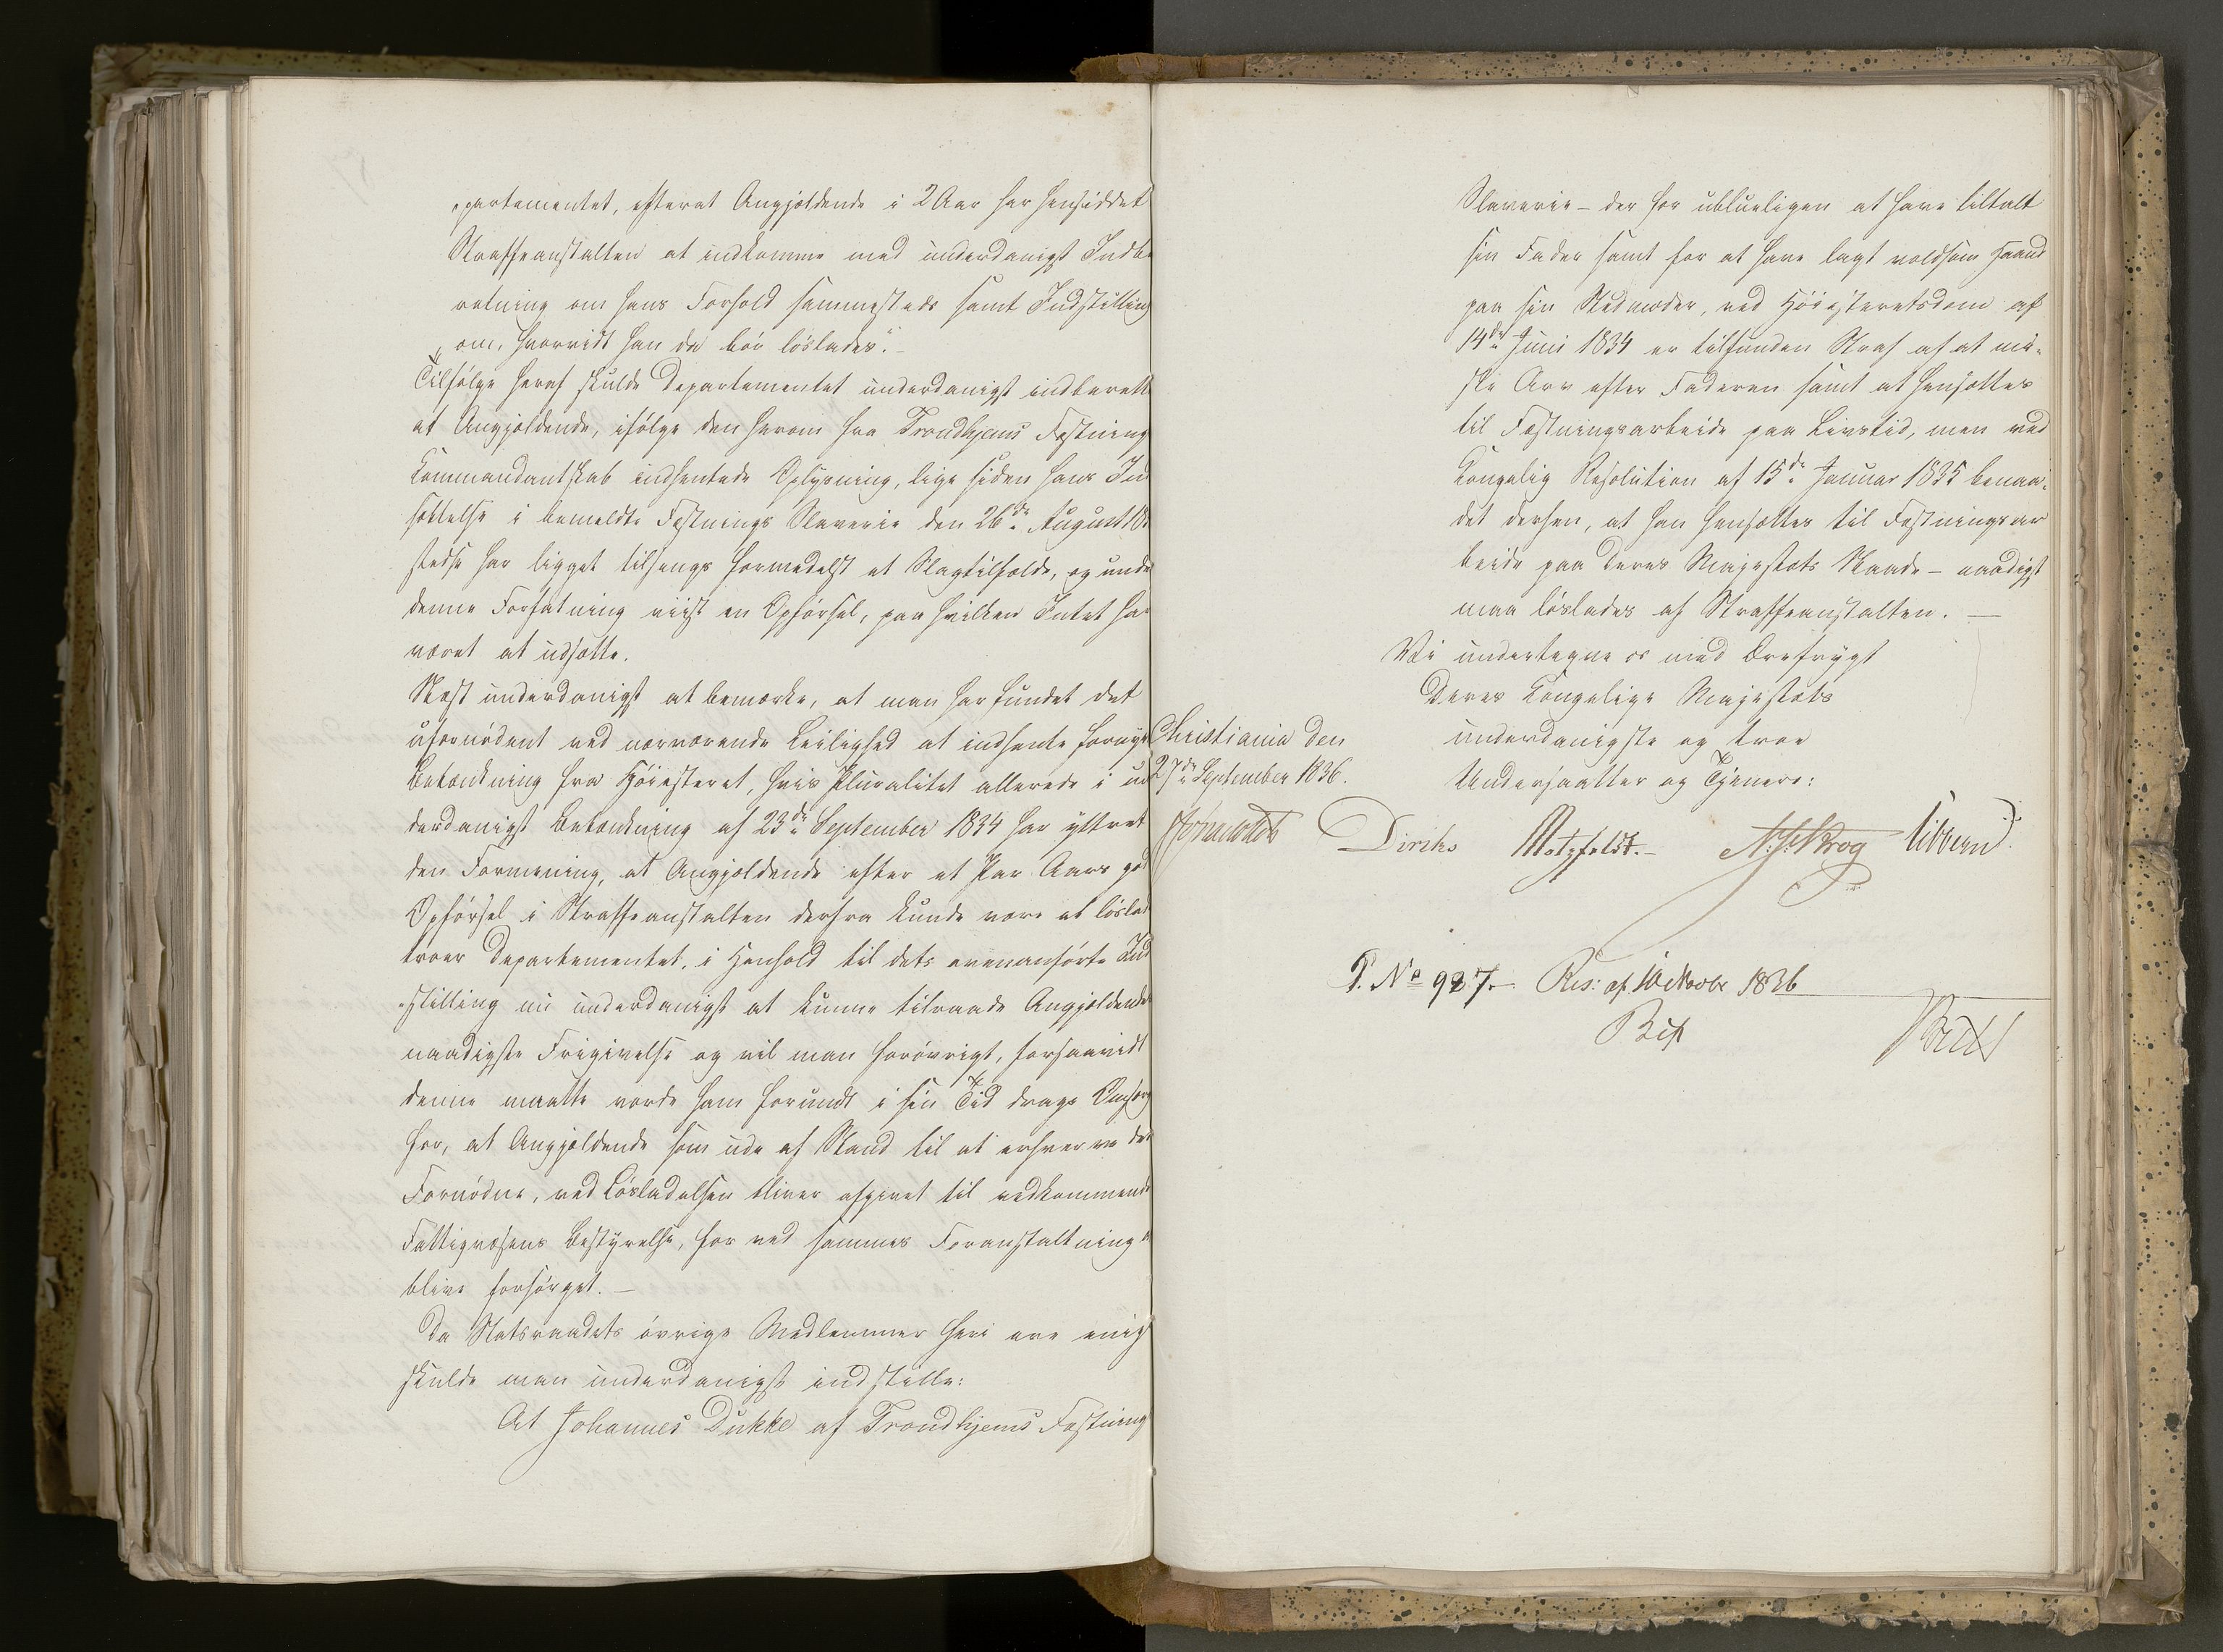 „partementet, efterat Angjældende i 2 Aar har hensiddet
Straffeanstalten at indkomme med underdanigst Indbe
retning om hans Forhold sammesteds samt Indstilling
„om, hvorvidt han da bør løslades.“ —
Tilfølge heraf skulde Departementet underdanigst indberette
at Angjældende, ifølge den herom fra Trondhjems Fæstnings
Kommandantskab indhentede Oplysning, lige siden hans Ind
sættelse i bemeldte Fæstnings Slaverie den 26de August 18
stedse har ligget tilsengs formedelst et Slagtilfælde, og under
denne Forfatning viist en Opførsel, paa hvilken Intet har
været at udsætte.
Næst underdanigst at bemærke, at man har fundet det
ufornødent ved nærværende Leilighed at indhente fornyet
Betænkning fra Høiesteret, hvis Pluralitet allerede i un
derdanigst Betænkning af 23de September 1834 har yttret
den Formening, at Angjældende efter et Par Aars god
Opførsel i Straffeanstalten derfra kunde være at løslade
troer Departementet, i Henhold til dets ovenanførte Ind
„stilling nu underdanigst at kunne tilraade Angjældendes
naadigste Frigivelse og vil man forøvrigt, forsaavidt
denne maatte vorde ham forundt i sin Tid drage Omsorg
for, at Angjældende som ude af Stand til at erhverve det
Fornødne, ved Løsladelsen bliver afgivet til vedkommende
Fattigvæsens Bestyrelse, for ved sammes Foranstaltning at
blive forsørget. —
Da Statsraadets øvrige Medlemmer heri ere enige
skulde man underdanigst indstille:
At Johannes Dukke af Trondhjems Fæstnings
Slaverie – der for ublueligen at have tiltalt
sin Fader samt for at have lagt voldsom Haand
paa sin Stedmoder, ved Høiesteretsdom af
14de Juni 1834 er tilfunden Straf af at mi-
ste Arv efter Faderen samt at hensættes
til Fæstningsarbeide paa Livstid, men ved
Kongelig Resolution af 15de Januar 1835 benaa-
det derhen, at han hensættes til Fæstningsar
beide paa Deres Majestæts Naade – naadigst
maa løslades af Straffeanstalten. —
Vi undertegne os med Ærefrygt
Deres Kongelige Majestæts
underdanigste og troe
Undersaatter og Tjenere:
Christiania den
27de September 1836.
Diriks Motzfeldt. – Krog Vibbern
P. No 927. – Res: af 10 Octobr 1836